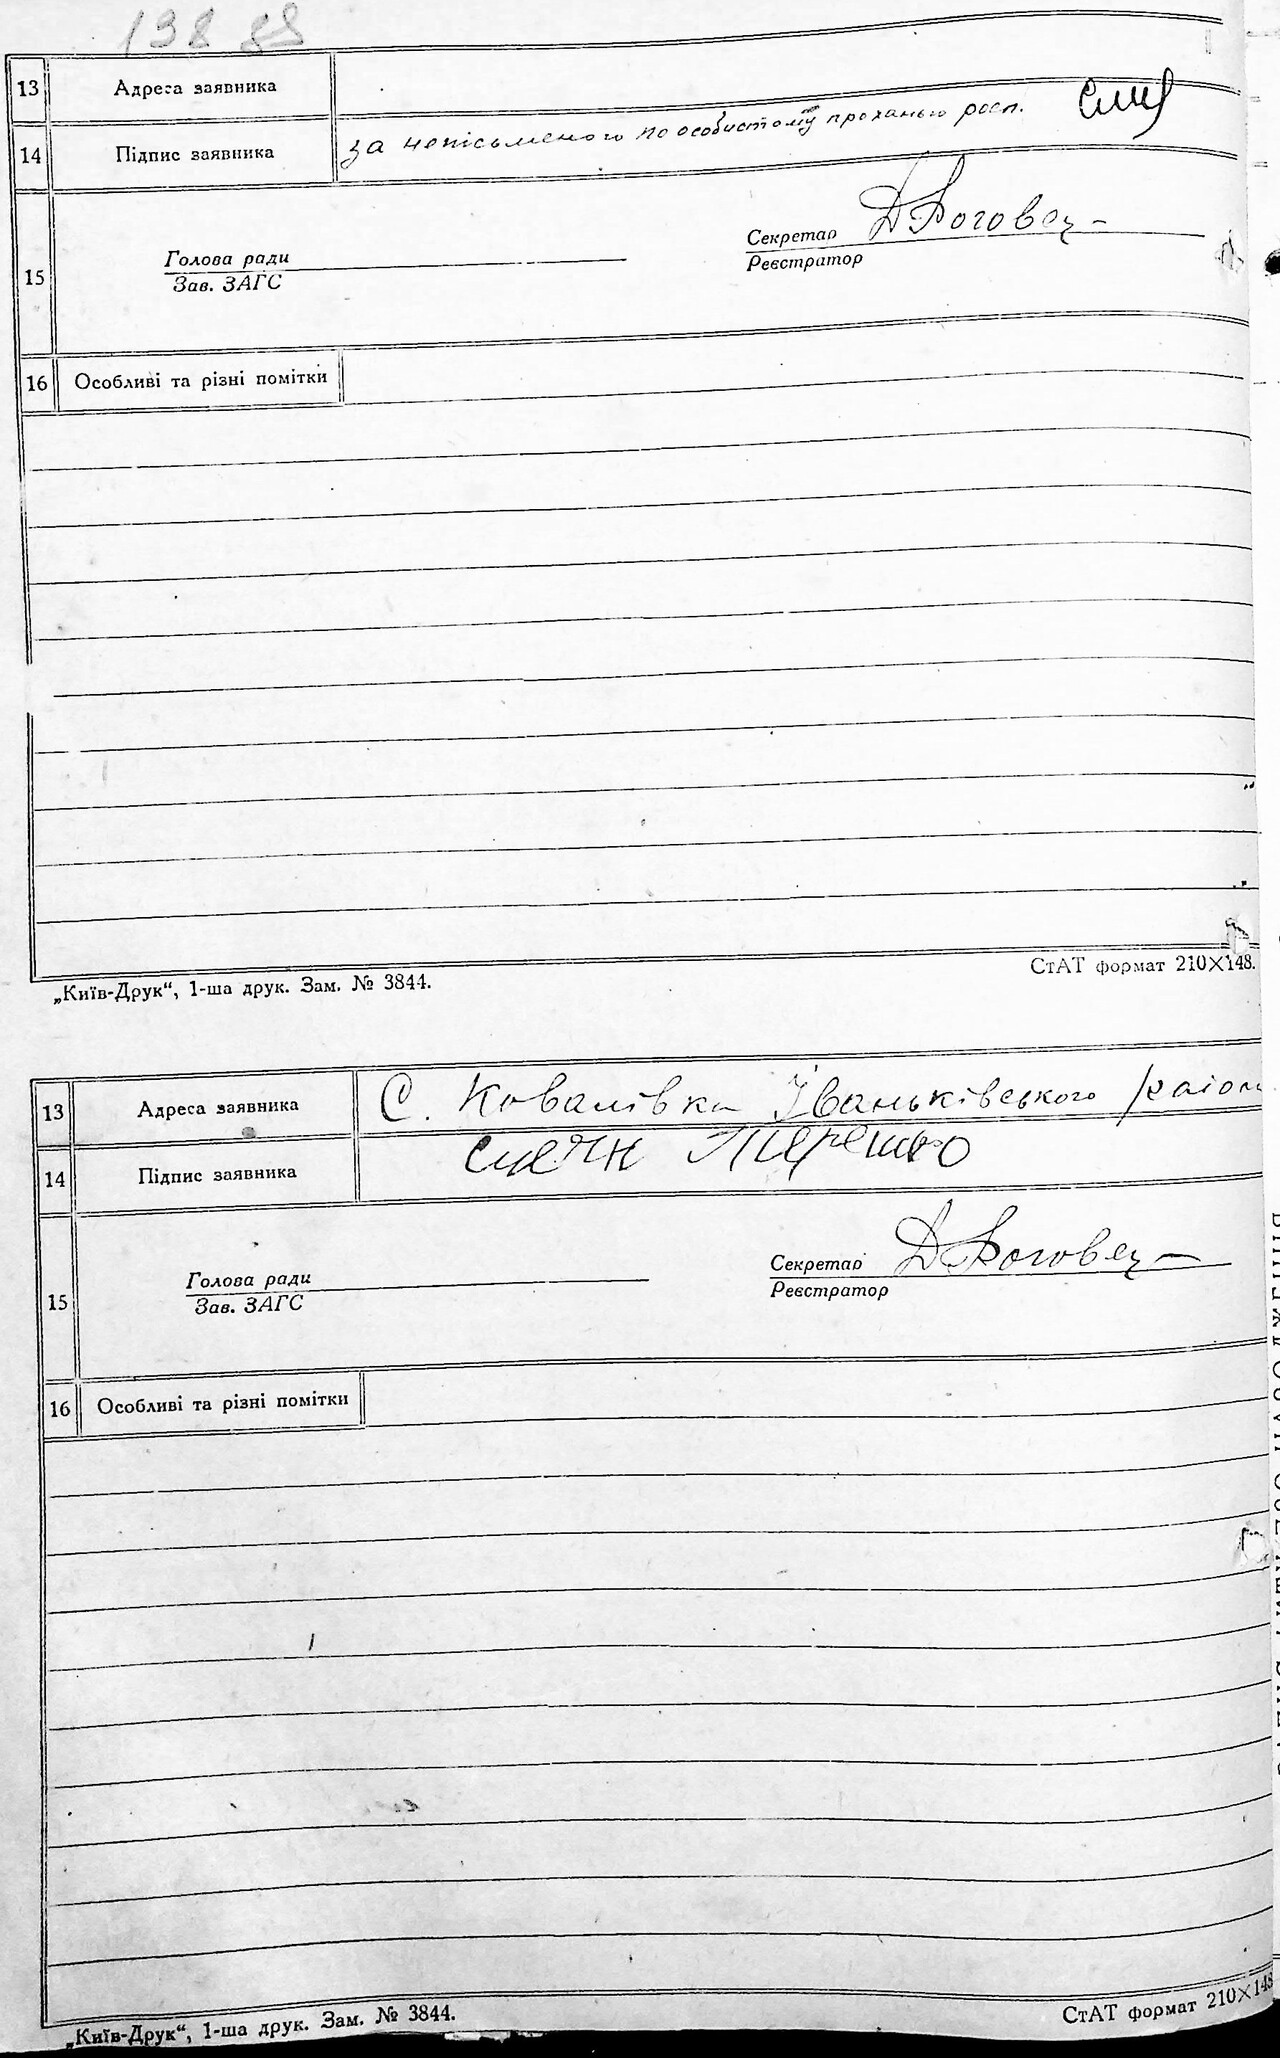 138 зв
13 Адреса заявника
14 Підпис заявника за неписьменого по особистому проханью росп.
Секретар Д Роговец
Голова ради Реєстратор
15 Зав. ЗАГС
16 Особливі та різні помітки
„Київ-Друк“, 1-ша друк. Зам. № 3844. СтАТ формат 210×148.
13 Адреса заявника С. Ковалівка Іваньківського район
14 Підпис заявника
Секретар Д Роговец
Голова ради Реєстратор
15 Зав. ЗАГС
16 Особливі та різні помітки
„Київ-Друк“, 1-ша друк. Зам. № 3844. СтАТ формат 210×148